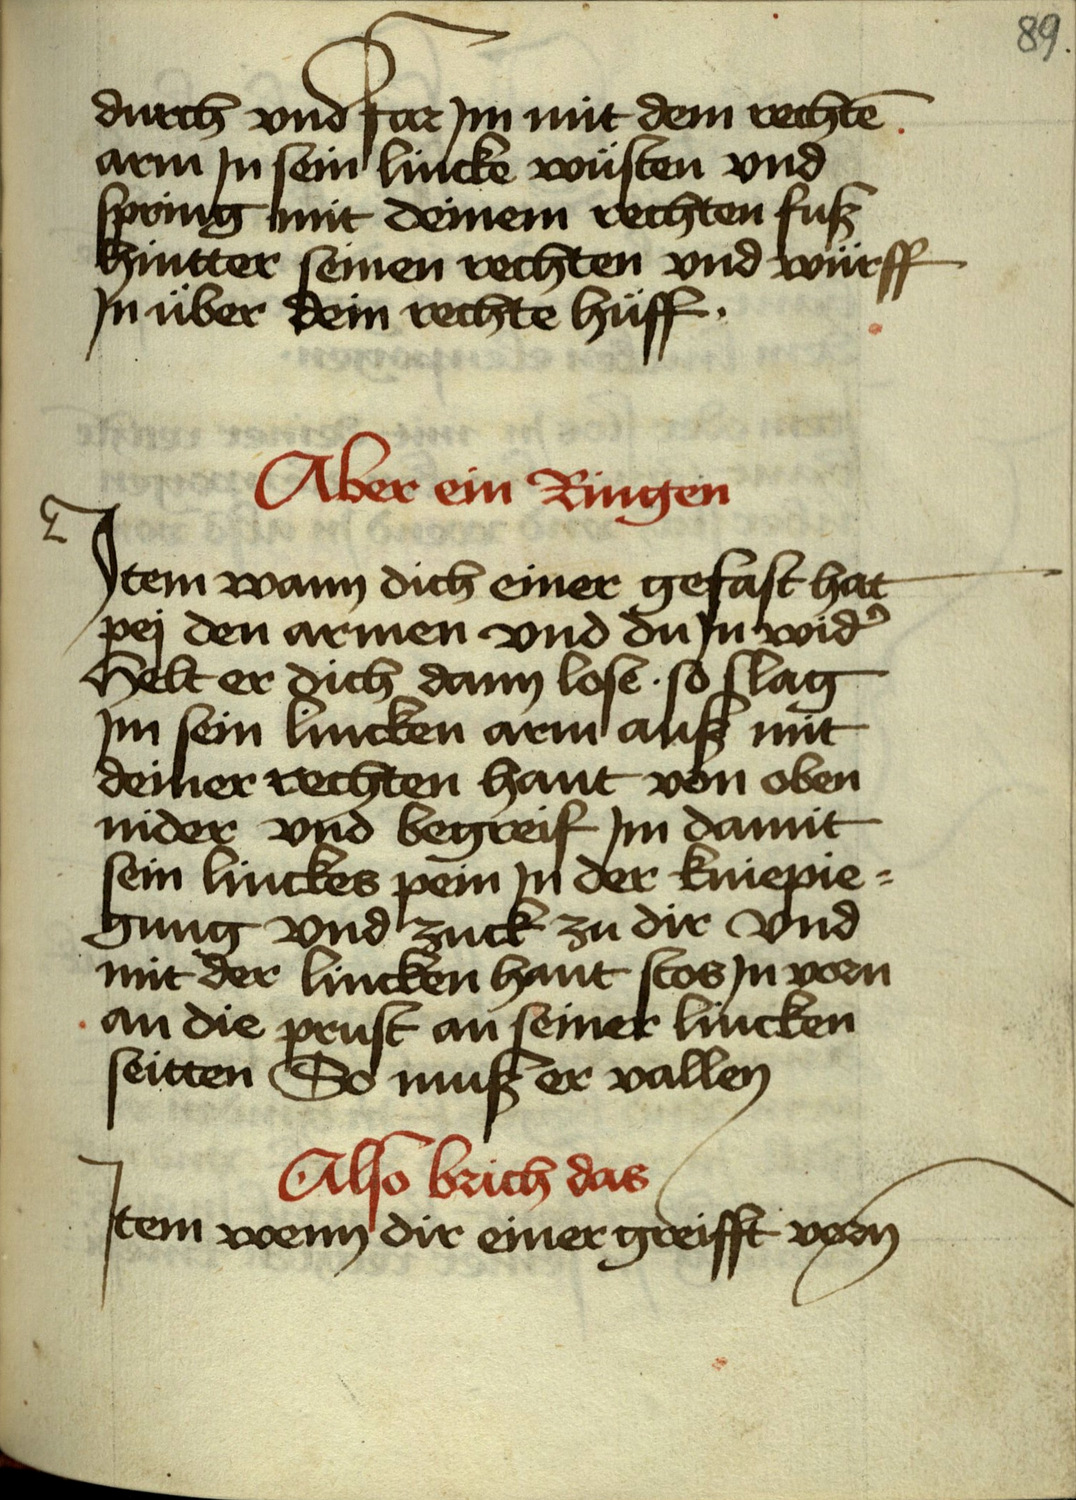 89.
durch vnd far Im mit dem rechtē
arm In sein lincke wüsten vnd
spring mit deinem rechten fuß
hintter seinen rechten vnd würff
In über dein rechte hüff.
Aber ein Ringen
Item wann dich einer gefast hat
pej den armen vnd du In wid᾽
Helt er dich dann lose. so slag
Im sein lincken arm auß mit
deiner rechten hant von oben
nider vnd begreif Im damit
sein linckes pein In der kniepie=
gung vnd zuck zu dir vnd
mit der lincken hant stos In vorn
an die prust an seiner lincken
seitten So muß er vallen
Also brich das
Item wenn dir einer greifft vorn